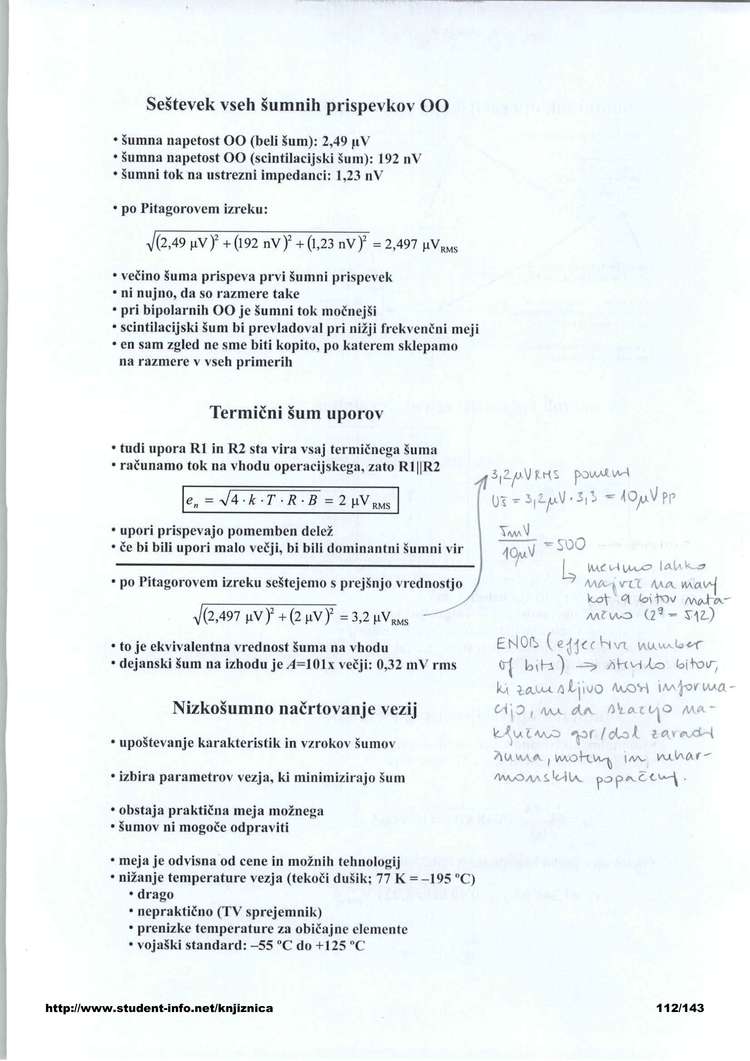 Seštevek vseh šumnih prispevkov OO
• šumna napetost OO (beli šum): 2,49 µV
• šumna napetost OO (scintilacijski šum): 192 nV
• šumni tok na ustrezni impedanci: 1,23 nV
• po Pitagorovem izreku:
√(2,49 µV)² + (192 nV)² + (1,23 nV)² = 2,497 µV RMS
• večino šuma prispeva prvi šumni prispevek
• ni nujno, da so razmere take
• pri bipolarnih OO je šumni tok močnejši
• scintilacijski šum bi prevladoval pri nižji frekvenčni meji
• en sam zgled ne sme biti kopito, po katerem sklepamo
na razmere v vseh primerih
Termični šum uporov
• tudi upora R1 in R2 sta vira vsaj termičnega šuma
• računamo tok na vhodu operacijskega, zato R1||R2
eₙ = √4·k·T·R·B = 2 µV RMS
• upori prispevajo pomemben delež
• če bi bili upori malo večji, bi bili dominantni šumni vir
• po Pitagorovem izreku seštejemo s prejšnjo vrednostjo
√(2,497 µV)² + (2 µV)² = 3,2 µV RMS
• to je ekvivalentna vrednost šuma na vhodu
• dejanski šum na izhodu je A=101x večji: 0,32 mV rms
3,2µV RMS pomeni
Uš = 3,2µV·3,3 = 10µV PP
5mV
10µV
= 500
merimo lahko
največ na manj
kot 9 bitov nata-
nčno (2⁹ = 512)
ENOB (effective number
of bits) → število bitov,
ki zanesljivo nosi informa-
cijo, ne da skačejo na-
ključno gor/dol zaradi
šuma, motenj in nehar-
monskih popačenj.
Nizkošumno načrtovanje vezij
• upoštevanje karakteristik in vzrokov šumov
• izbira parametrov vezja, ki minimizirajo šum
• obstaja praktična meja možnega
• šumov ni mogoče odpraviti
• meja je odvisna od cene in možnih tehnologij
• nižanje temperature vezja (tekoči dušik; 77 K = –195 ºC)
• drago
• nepraktično (TV sprejemnik)
• prenizke temperature za običajne elemente
• vojaški standard: –55 ºC do +125 ºC
http://www.student-info.net/knjiznica
112/143